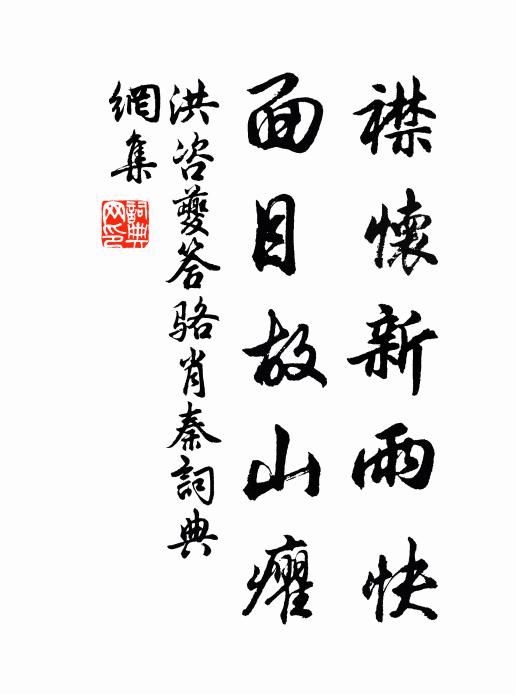 襟懷新雨快
面目故山癯
洪咨夔答骆肖秦詞典
網集
詞典网印